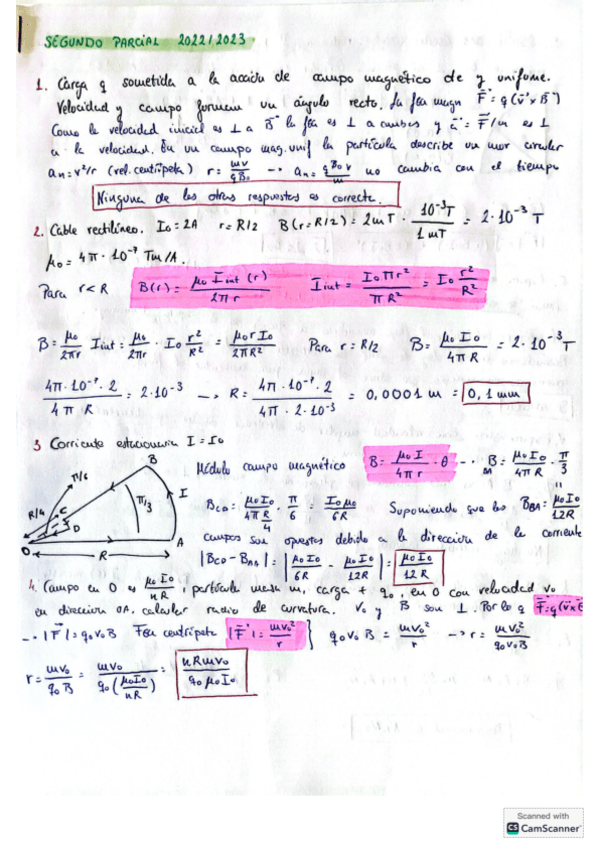 SEGUNDO PARCIAL 2022/2023
1. Carga q sometida a la acción de campo magnético de y uniforme.
Velocidad y campo forman un ángulo recto. La fza magn F = q(v×B)
Como la velocidad inicial es ⊥ a B la fza es ⊥ a ambas y a = F/m es ⊥
a la velocidad. En un campo mag. unif la partícula describe un mov circular
an = v²/r (vel. centrípeta) r = mv/qB₀ --→ an = qB₀v/m no cambia con el tiempo
Ninguna de las otras respuestas es correcta.
2. Cable rectilíneo. I₀ = 2A r = R/2 B(r = R/2) = 2mT · 10⁻³T/1mT = 2·10⁻³ T
μ₀ = 4π · 10⁻⁷ Tm/A.
Para r < R B(r) = μ₀ Iint (r)/2πr Iint = I₀πr²/πR² = I₀ r²/R²
B = μ₀/2πr Iint = μ₀/2πr · I₀ r²/R² = μ₀rI₀/2πR² Para r = R/2 B = μ₀I₀/4πR = 2·10⁻³T
4π·10⁻⁷·2/4πR = 2·10⁻³ --→ R = 4π·10⁻⁷·2/4π·2·10⁻³ = 0,0001 m = 0,1 mm
3 Corriente estacionaria I = I₀
B
π/6
I
π/3
R/4
C
D
O
R
A
Módulo campo magnético B = μ₀I/4πr · θ --→ B = μ₀I₀/4πR · π/3
BCD = μ₀I₀/4πR/4 · π/6 = I₀μ₀/6R Suponiendo que los BBA = μ₀I₀/12R
campos son opuestos debido a la dirección de la corriente
|BCD − BAB| = |μ₀I₀/6R − μ₀I₀/12R| = μ₀I₀/12R
4. Campo en O es μ₀I₀/nR, partícula masa m, carga + q₀, en O con velocidad v₀
en direccion OA, calcular radio de curvatura. V₀ y B son ⊥. Por lo q F=q(v×B
--→ |F| = q₀v₀B Fza centrípeta |F| = mv₀²/r } q₀v₀B = mv₀²/r --→ r = mv₀²/q₀v₀B
r = mv₀/q₀B = mv₀/q₀(μ₀I₀/nR) = nRmv₀/q₀μ₀I₀
Scanned with
CS CamScanner